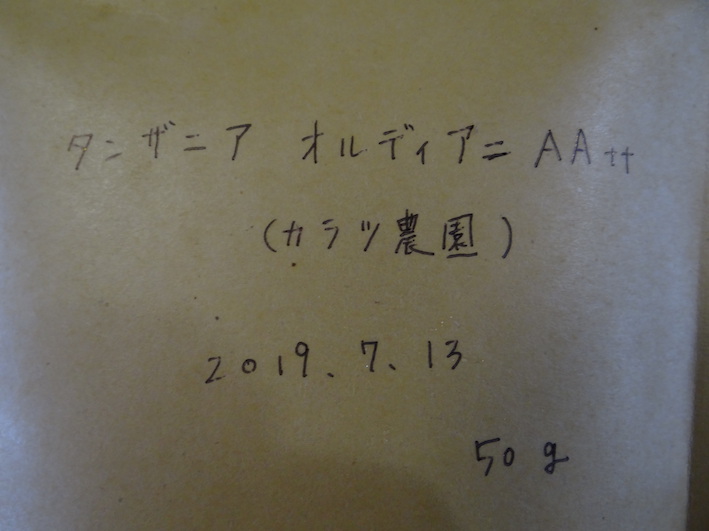 タンザニア オルディアニ AA++
(カラツ農園)
2019.7.13
50g